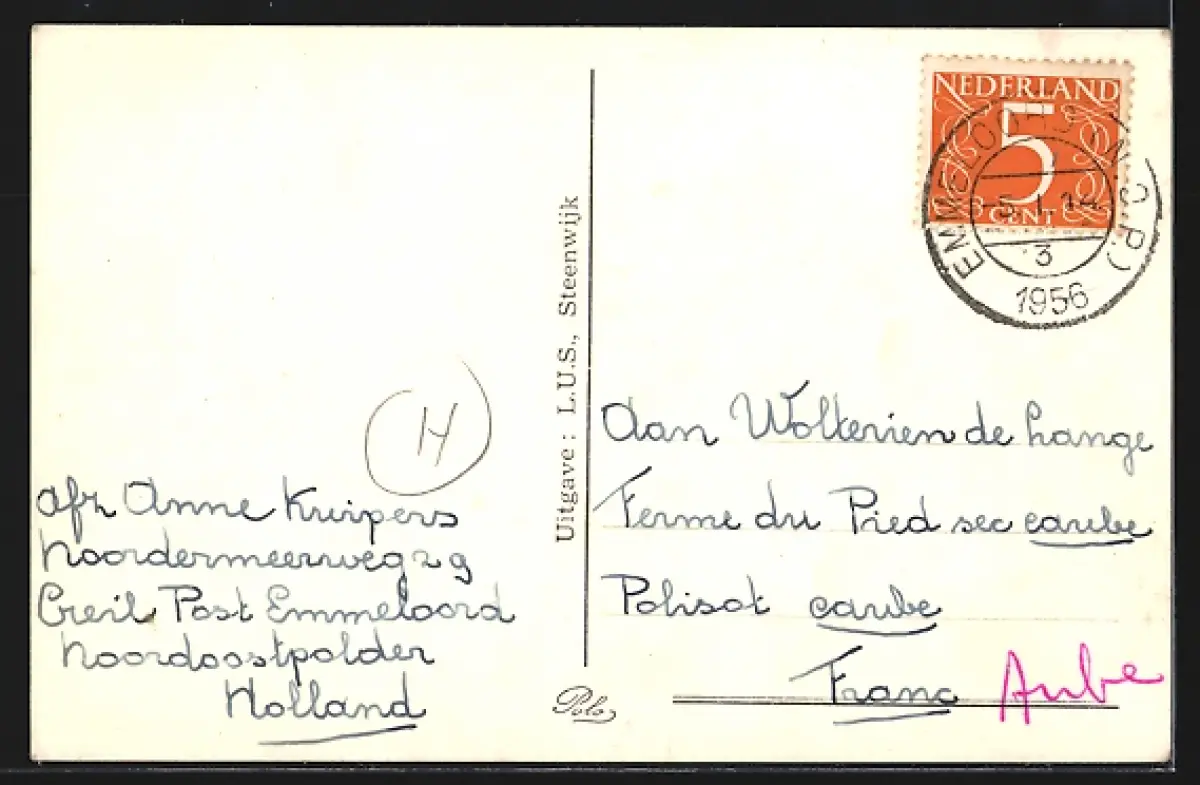 NEDERLAND
5
CENT
EMMELOORD (N.O.P.)
3
1956
Uitgave: L.U.S., Steenwijk
H
afz Anne Kuipers
Noordermeerweg 29
Creil Post Emmeloord
Noordoostpolder
Holland
Aan Wolterien de Lange
Ferme du Pied sec eaube
Polisot eaube
Franc Aube
Polo